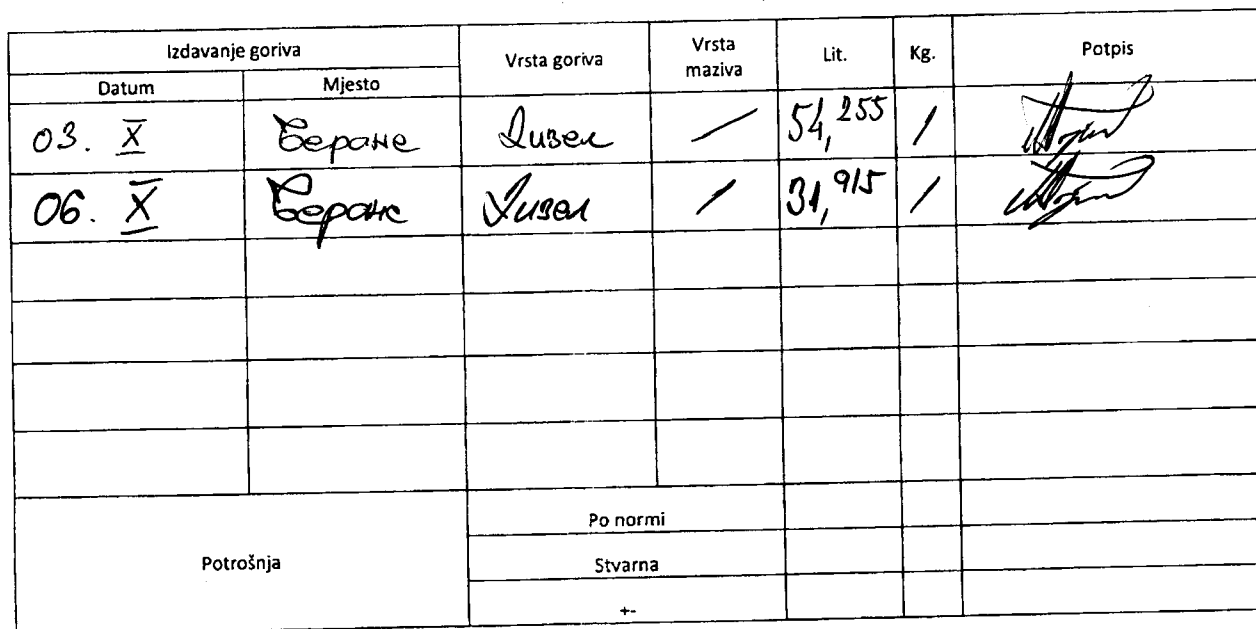 Izdavanje goriva Vrsta goriva Vrsta maziva Lit. Kg. Potpis
Datum Mjesto
03. X Беране Дизел / 54,255 /
06. X Беране Дизел / 31,915 /
Potrošnja
Po normi
Stvarna
+-